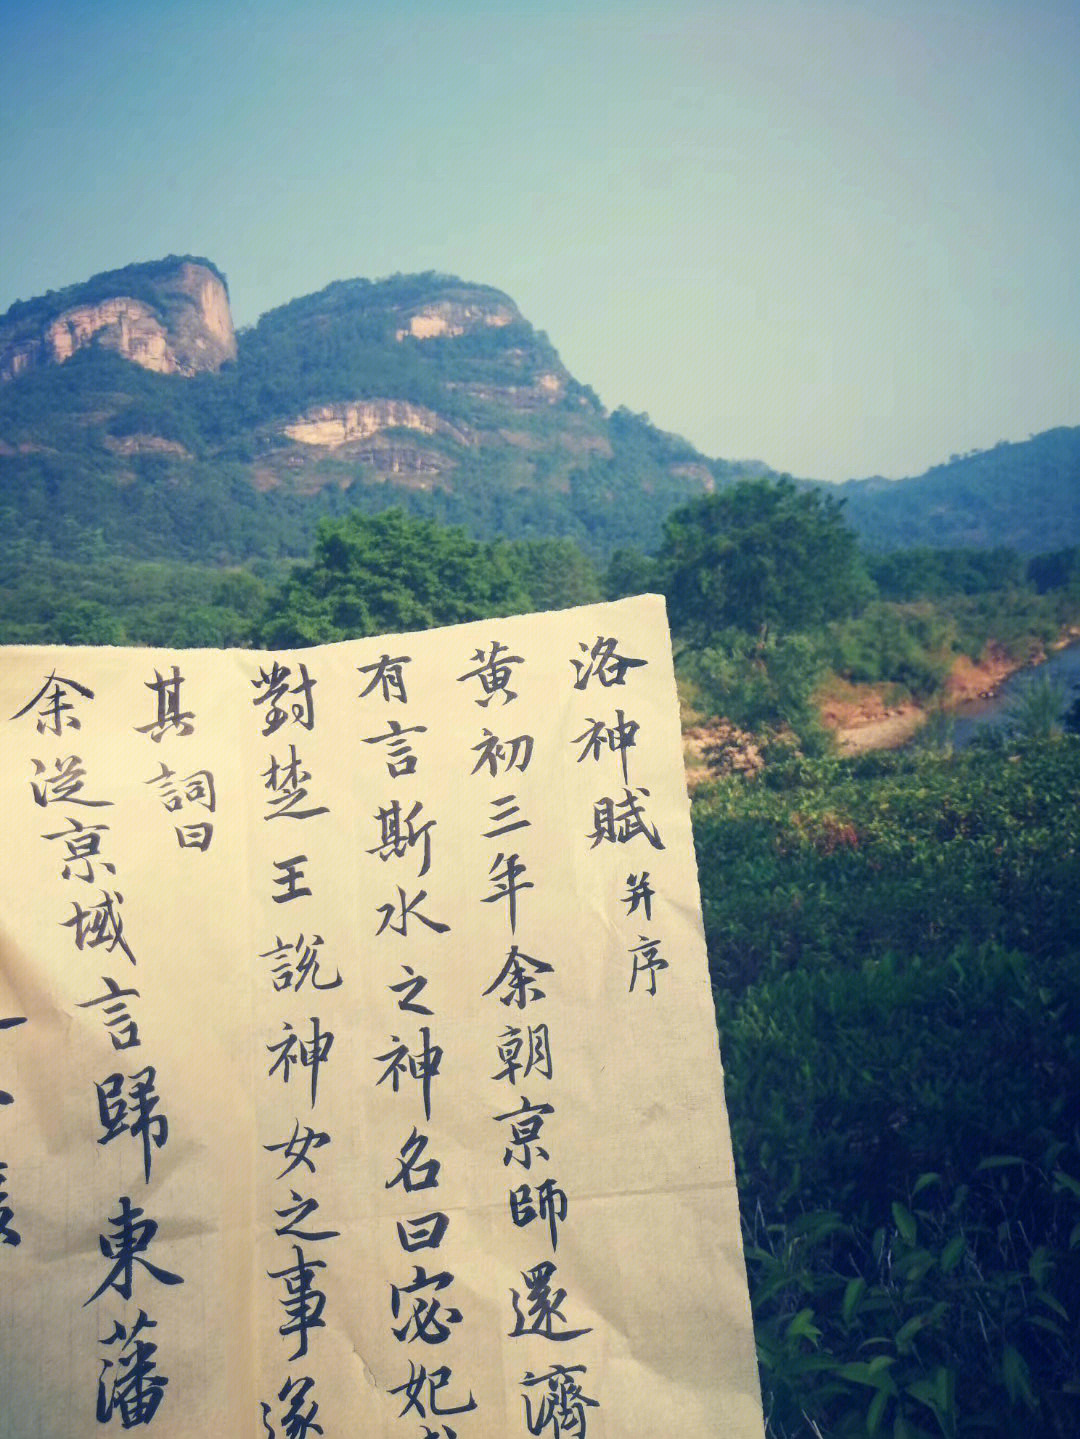 洛神賦并序
黄初三年余朝京師還濟
有言斯水之神名曰宓妃
對楚王說神女之事遂
其詞曰
余從京域言歸東藩